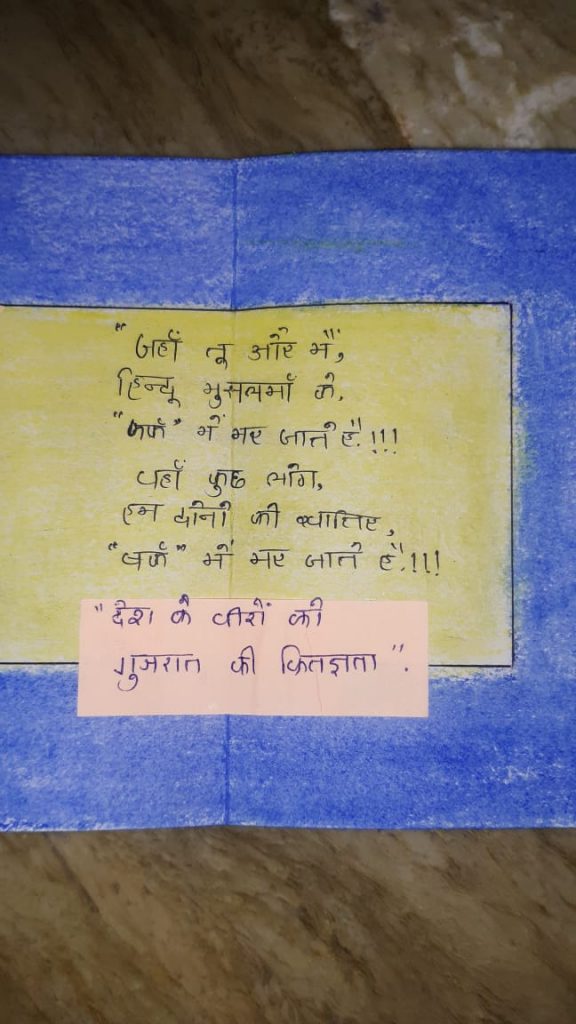 "जहाँ तू और मैं,
हिन्दू मुसलमाँ के,
"फर्क" में मर जाते है.!!!
वहाँ कुछ लोग,
हम दोनो की खातिर,
"बर्फ" में मर जाते है.!!!
"देश के वीरों को
गुजरात की कितज्ञता".